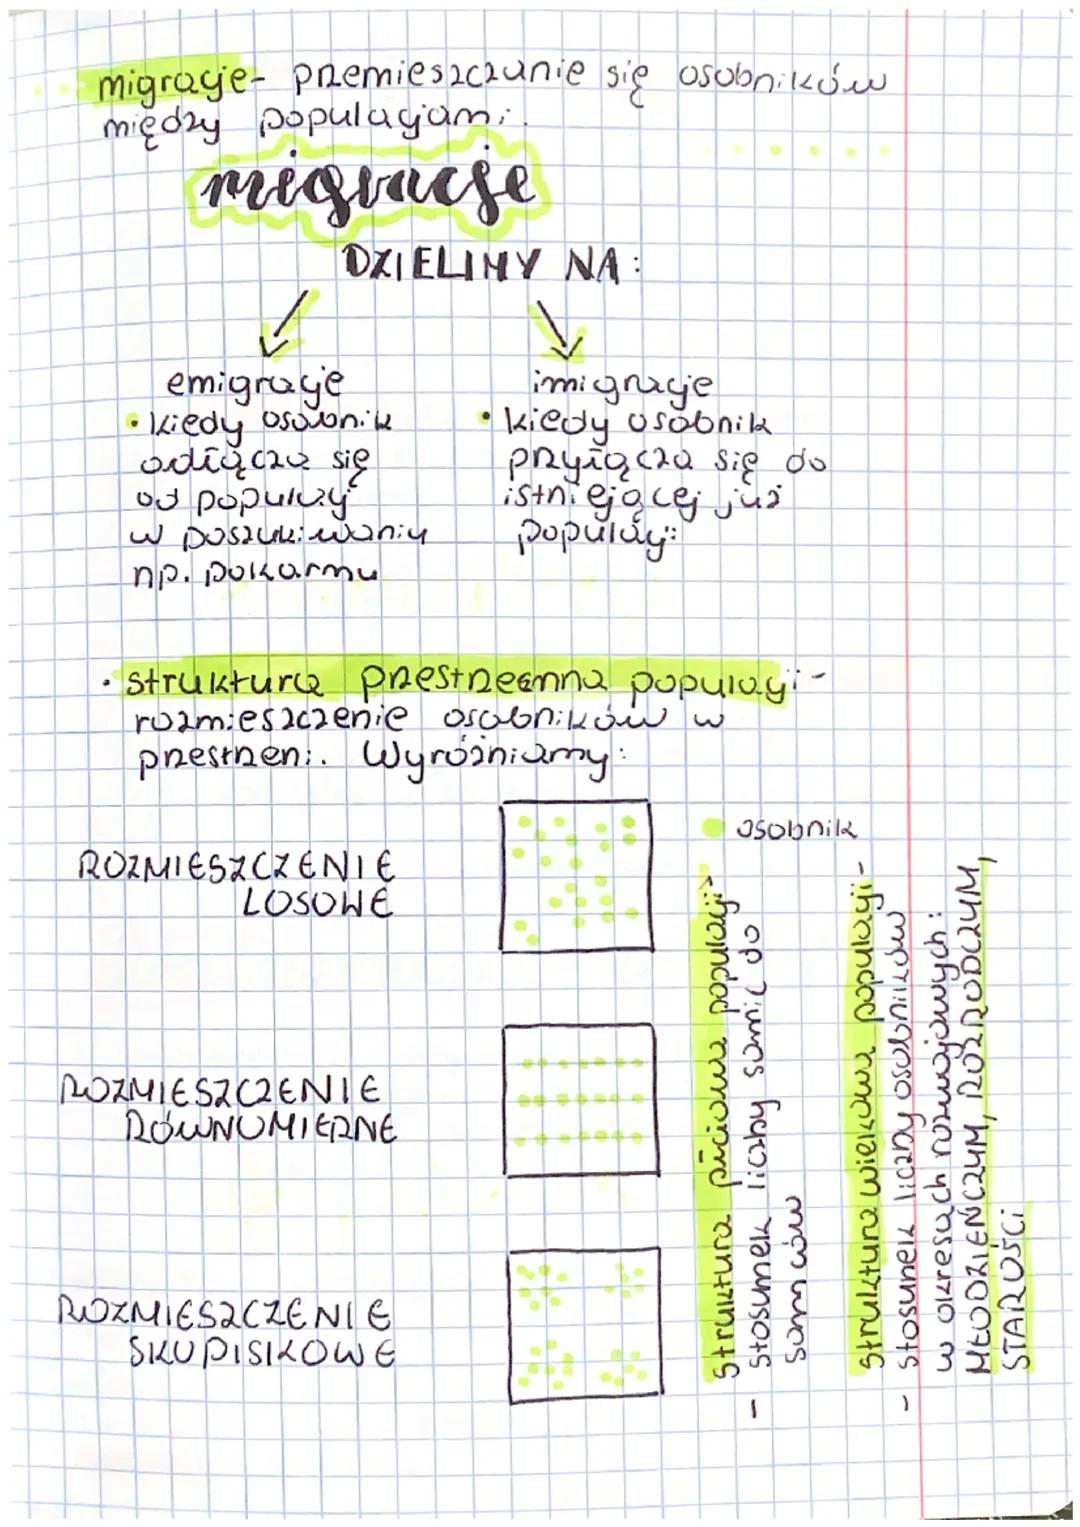 migracje- przemieszczanie się osobników
między populacjami.
migracje
DZIELIMY NA:
emigracje
• kiedy osobnik
odłącza się
od populacji
w poszukiwaniu
np. pokarmu
imigracje
• kiedy osobnik
przyłącza się do
istniejącej już
populacji
• struktura przestrzenna populacji-
rozmieszczenie osobników w
przestrzeni. Wyróżniamy:
ROZMIESZCZENIE
LOSOWE
ROZMIESZCZENIE
RÓWNOMIERNE
ROZMIESZCZENIE
SKUPISKOWE
osobnik
struktura płciowa populacji-
- stosunek liczby samic do
samców
struktura wiekowa populacji-
- stosunek liczby osobników
w okresach rozwojowych:
MŁODZIEŃCZYM, ROZRODCZYM,
STAROŚCI